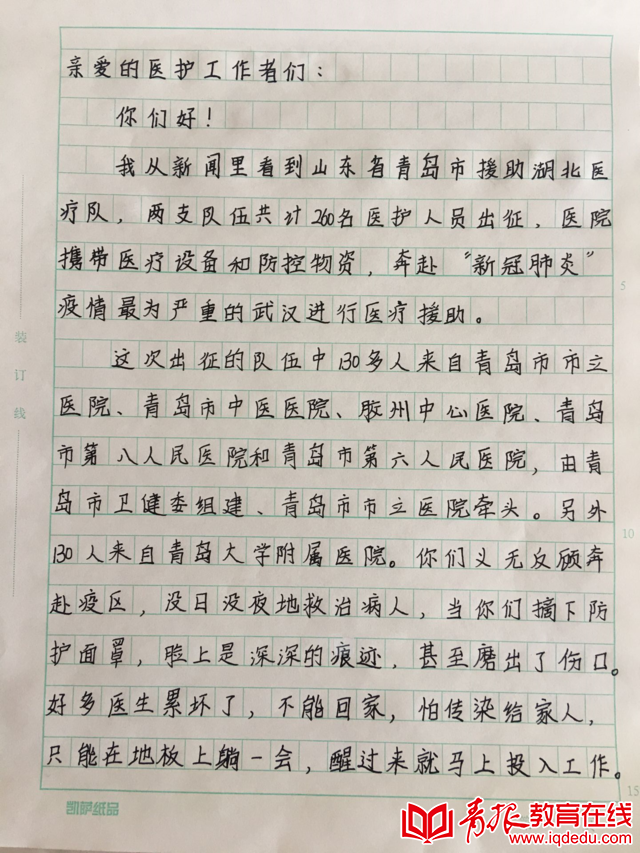 亲爱的医护工作者们：
你们好！
我从新闻里看到山东省青岛市援助湖北医
疗队，两支队伍共计260名医护人员出征，医院
携带医疗设备和防控物资，奔赴“新冠肺炎”
疫情最为严重的武汉进行医疗援助。
这次出征的队伍中130多人来自青岛市市立
医院、青岛市中医医院、胶州中心医院、青岛
市第八人民医院和青岛市第六人民医院，由青
岛市卫健委组建、青岛市市立医院牵头。另外
130人来自青岛大学附属医院。你们义无反顾奔
赴疫区，没日没夜地救治病人，当你们摘下防
护面罩，脸上是深深的痕迹，甚至磨出了伤口。
好多医生累坏了，不能回家，怕传染给家人，
只能在地板上躺一会，醒过来就马上投入工作。
装订线
5
10
15
凯萨纸品
青报教育在线
www.iqdedu.com